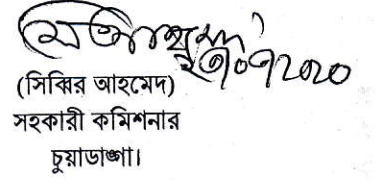 (সিব্বির আহমেদ)
সহকারী কমিশনার
চুয়াডাঙ্গা।